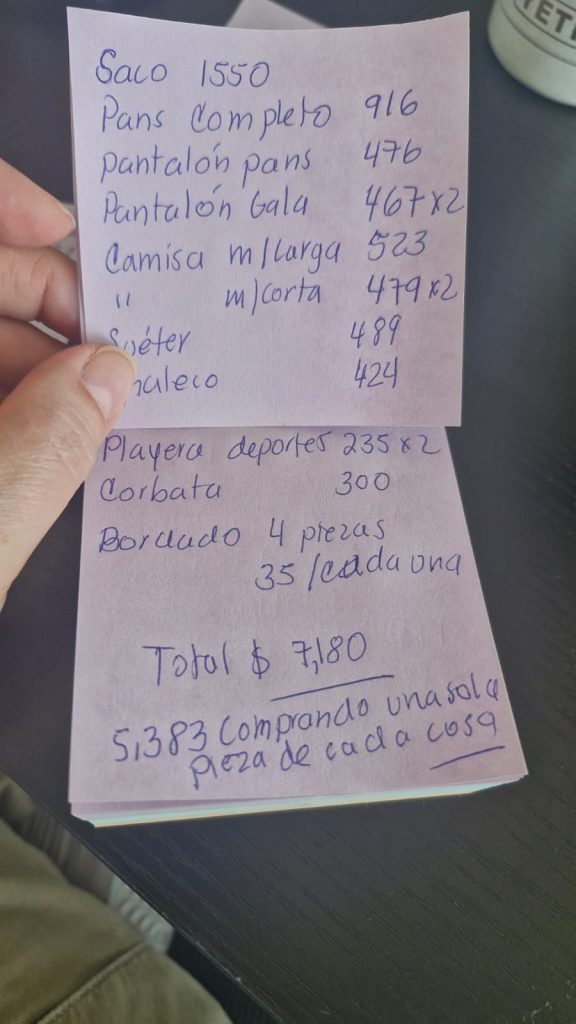 Saco 1550
Pans Completo 916
pantalón pans 476
Pantalón Gala 467x2
Camisa m/Larga 523
" m/corta 479x2
Suéter 489
haleco 424
Playera deportes 235 x 2
Corbata 300
Bordado 4 piezas
35 /cada una
Total $ 7,180
5,383 Comprando una sola
pieza de cada cosa
YETI